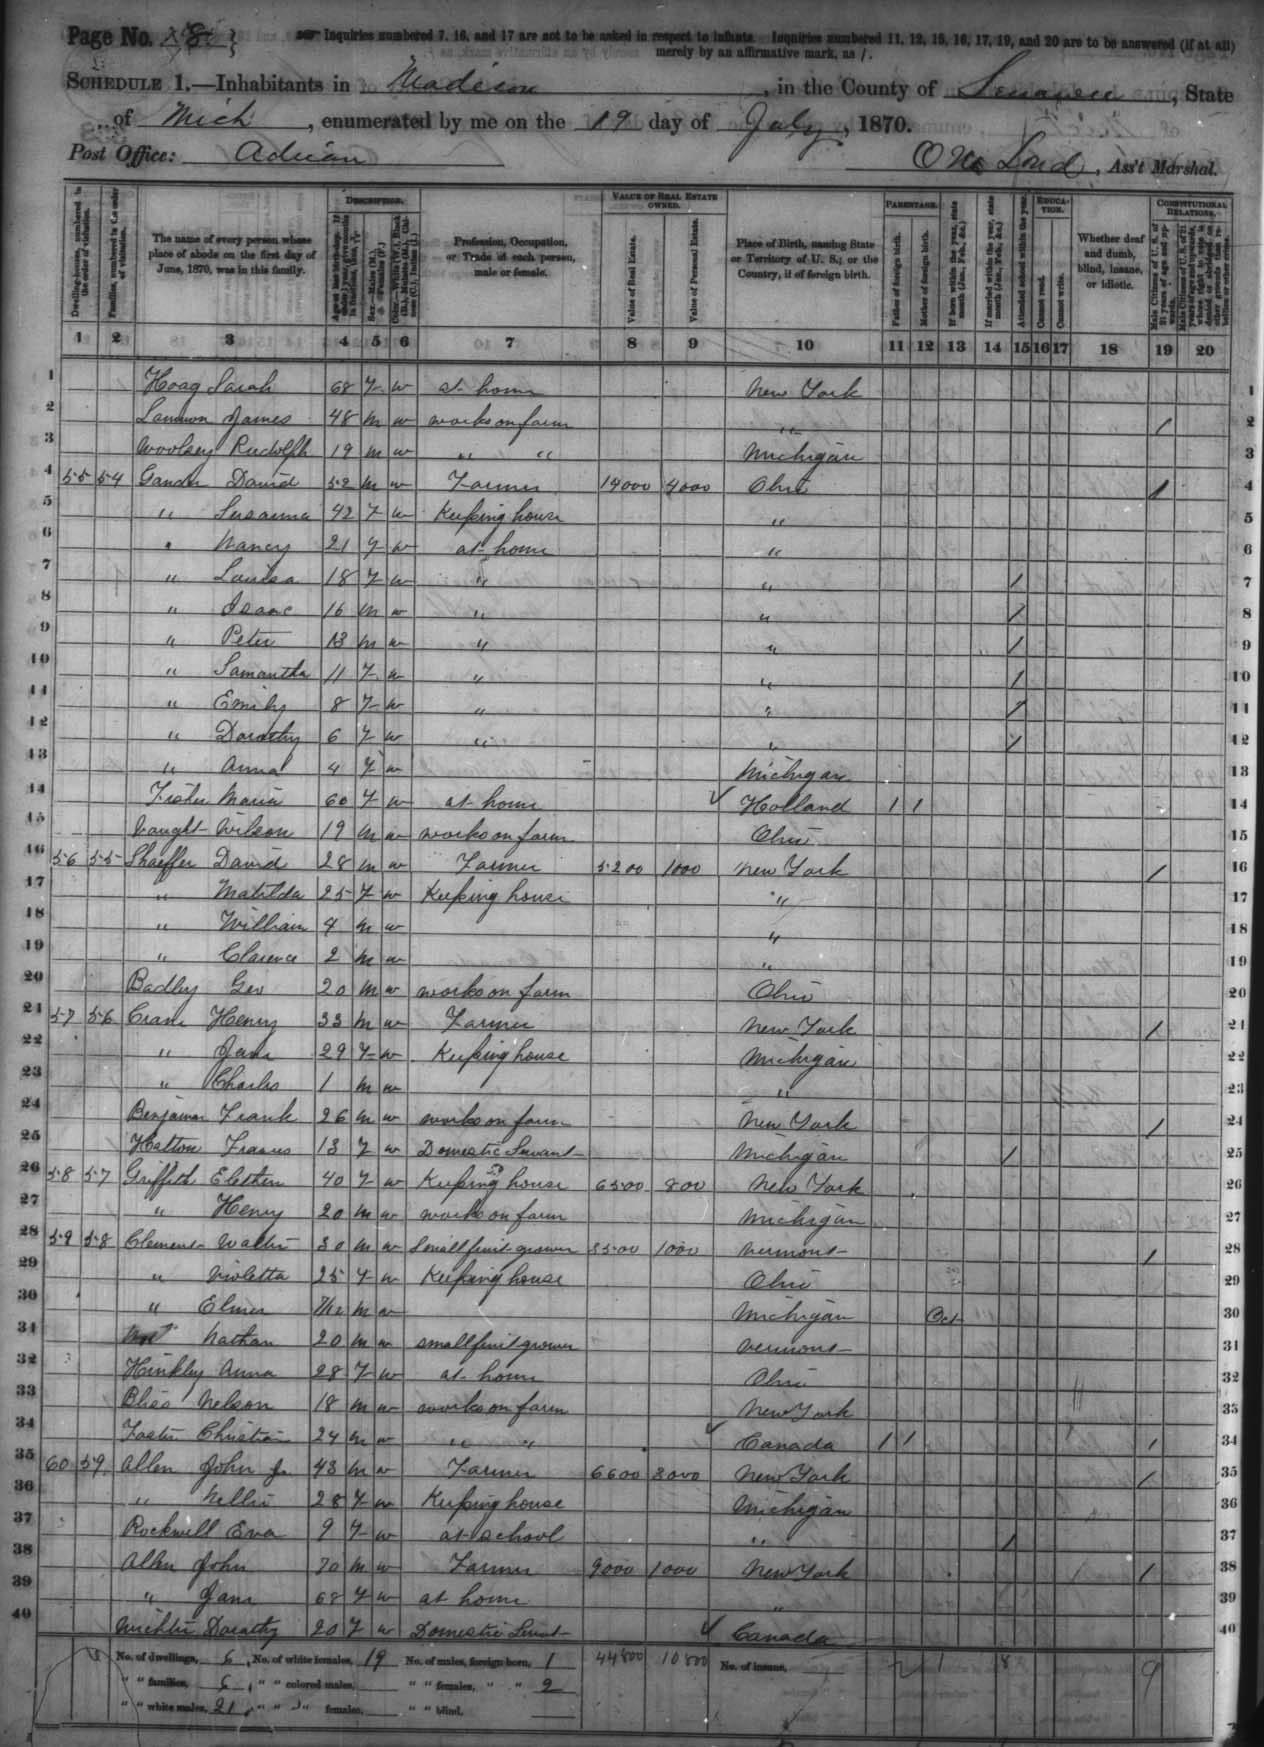 Page No. 8
Inquiries numbered 7, 16, and 17 are not to be asked in respect to infants. Inquiries numbered 11, 12, 15, 16, 17, 19, and 20 are to be answered (if at all)
merely by an affirmative mark, as /.
SCHEDULE 1.—Inhabitants in Madison, in the County of Lenawee, State
of Mich, enumerated by me on the 19 day of July, 1870.
Post Office: Adrian
Ass't Marshal.
DESCRIPTION. VALUE OF REAL ESTATE OWNED. PARENTAGE. EDUCATION. CONSTITUTIONAL RELATIONS.
Dwelling-houses, numbered in the order of visitation.
Families, numbered in the order of visitation.
The name of every person whose place of abode on the first day of June, 1870, was in this family.
Profession, Occupation, or Trade of each person, male or female.
Value of Real Estate.
Value of Personal Estate.
Place of Birth, naming State or Territory of U. S.; or the Country, if of foreign birth.
Father of foreign birth.
Mother of foreign birth.
If born within the year, state month (Jan., Feb., &c.)
If married within the year, state month (Jan., Feb., &c.)
Attended school within the year.
Cannot read.
Cannot write.
Whether deaf and dumb, blind, insane, or idiotic.
1 2 3 4 5 6 7 8 9 10 11 12 13 14 15 16 17 18 19 20
1 Hoag Sarah 68 F w at home New York 1
2 James 48 m w works on farm " / 2
3 Woolsey Rudolph 19 m w " " Michigan 3
4 55 54 Gander David 52 m w Farmer 14000 4000 Ohio / 4
5 " Susanna 42 F w Keeping house " 5
6 " Nancy 21 F w at home " 6
7 " Louisa 18 F w " " / 7
8 " Isaac 16 m w " " / 8
9 " Peter 13 m w " " / 9
10 " Samantha 11 F w " " / 10
11 " Emily 8 F w " " / 11
12 " Dorothy 6 F w " " / 12
13 " Anna 4 F w Michigan 13
14 Maria 60 F w at home ✓ Holland / / 14
15 Vaught Wilson 19 m w works on farm Ohio 15
16 56 55 Shaeffer David 28 m w Farmer 5200 1000 New York / 16
17 " Matilda 25 F w Keeping house " 17
18 " William 4 m w " 18
19 " Clarence 2 m w " 19
20 Badley Geo 20 m w works on farm Ohio 20
21 57 56 Crane Henry 33 m w Farmer New York / 21
22 " Jane 29 F w Keeping house Michigan 22
23 " Charles 1 m w " 23
24 Benjamin Frank 26 m w works on farm New York / 24
25 Frances 13 F w Domestic Servant Michigan / 25
26 58 57 Griffith 40 F w Keeping house 6500 800 New York 26
27 " Henry 20 m w works on farm Michigan 27
28 59 58 Clement Walter 30 m w Small fruit grower 3500 1000 Vermont / 28
29 " Violetta 25 F w Keeping house Ohio 29
30 " Elmer m w Michigan Oct 30
31 Nathan 20 m w small fruit grower Vermont 31
32 Hinkley Anna 28 F w at home Ohio 32
33 Bliss Nelson 18 m w works on farm New York 33
34 Foster Christian 24 m w " " ✓ Canada / / / 34
35 60 59 Allen John Jr 43 m w Farmer 6600 3000 New York / 35
36 " Nellie 28 F w Keeping house Michigan 36
37 Rockwell Eva 9 F w at school " / 37
38 Allen John 70 m w Farmer 9000 1000 New York / 38
39 " Jane 68 F w at home " 39
40 Dorothy 20 F w Domestic Servant ✓ Canada 40
No. of dwellings, 6, No. of white females, 19 No. of males, foreign born, 1 44800 10800 No. of insane, 2 1 8 9
" " families, 6, " " colored males, " " females, " " 2
" " white males, 21, " " " females, " " blind,